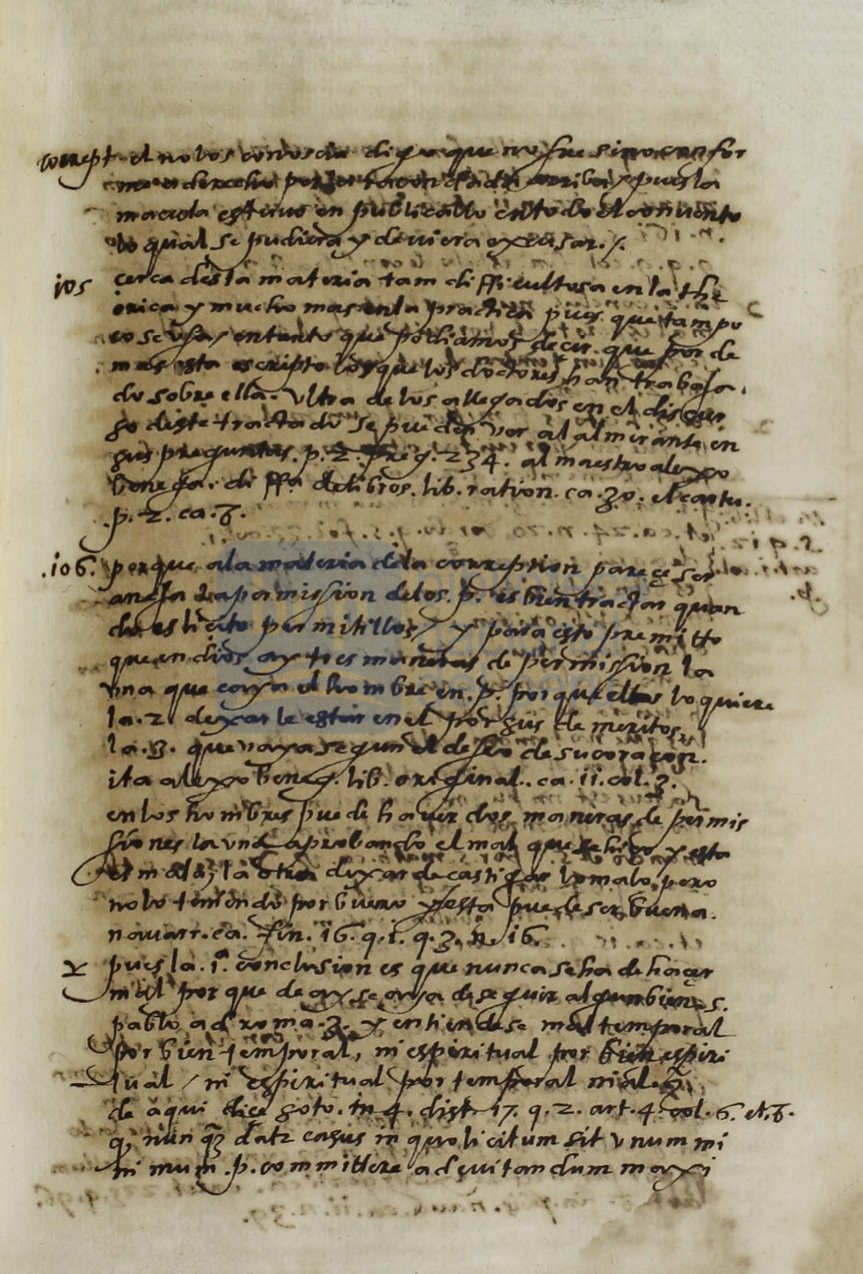 corrept. el no los conosdu digo que no fue sino confor
me a derecho por la razon dada arriba y pues la
macula estuuo en publicallo en todo el conuento
lo qual se pudiera y deuiera excusar./.
105 cerca desta materia tam difficultosa en la the
orica y mucho mas en la practica pues que tampo
co se usa, entanto que podiamos decir. que por de
mas esta escripto lo que los doctores han trabaja
do sobre ella. Vltra de los allegados en el discur
so deste tractado se pueden ver al almirante en
sus preguntas. p. 2. preg. 234. al maestro alexo
benega. diffa. de libros. lib. ration. ca. 30. el cartu.
p. 2. ca. 6.
.106. porque a la materia de la correption pareçe ser
aneja la permission de los. p. es bien tractar quan
do es licito permitillos / y para esto premitto
que en dios ay tres maneras de permission la
vna que caya el hombre en. p. porque ellos lo quiere
la .2. dexarle estar en el por sus demeritos
la .3. que vaya segun el desseo de su coraçon.
ita alexo beneg. lib. original. ca. 11. col. 3.
en los hombres puede hauer dos maneras de permis
siones la vna aprobando el mal que se hizo y esta
es mala, la otra dexar de castigar lo malo, pero
no lo teniendo por bueno y esta puede ser buena.
nauarr. ca. fin. 16. q. 1. q. 3. n. 16.
pues la .1ª. conclusion es que nunca se ha de haçer
mal porque de ay se aya de seguir algun bien. s.
pablo ad roma. 3. y entiendese mal temporal
por bien temporal, ni espiritual por bien espiri
tual / ni espiritual por temporal ni al
de aqui dice soto. in 4. dist. 17. q. 2. art. 4. col. 6. et. 7.
q nunqȝ datr casus in quo licitum sit vnum mi
nimum. p. committere ad euitandum maxi